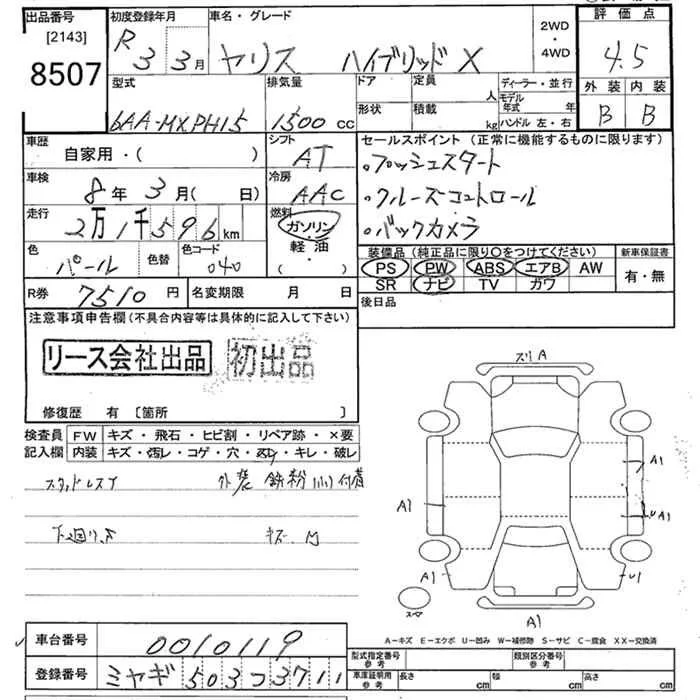 出品番号
[2143]
8507
初度登録年月
R 3 3月
車名・グレード
ヤリス ハイブリッド X
2WD
・
4WD
評価点
4.5
外装 内装
B B
型式
6AA-MXPH15
排気量
1500 cc
ドア
形状
定員 人
積載 kg
ディーラー・並行
モデル年式 年
ハンドル 左・右
車歴
自家用・( )
シフト
AT
車検
8年 3月( 日)
冷房
AAC
走行
2万1千596km
燃料
ガソリン
・
軽油
( )
色
パール
色替
色コード
040
R券 7510円
名変期限 月 日
セールスポイント (正常に機能するものに限ります)
・プッシュスタート
・クルーズコントロール
・バックカメラ
装備品 (純正品に限り○をつけてください)
PS PW ABS エアB AW
SR ナビ TV ガワ
新車保証書
有・無
後日品
注意事項申告欄(不具合内容等は具体的に記入して下さい)
リース会社出品 初出品
修復歴 有 〔箇所 〕
検査員記入欄
FW キズ・飛石・ヒビ割・リペア跡・×要
内装 キズ・汚レ・コゲ・穴・スレ・キレ・破レ
スタッドレスT 外装 鉄粉 付着
下廻り キズ
スリA
A1
A1
UA1
A1
U1
A1
A-キズ E-エクボ U-凹み W-補修跡 S-サビ C-腐食 XX-交換済
車台番号 0010119
登録番号 ミヤギ 503 つ 3711
型式指定番号 参考
類別区分番号 参考
車庫証明用 参考
長さ cm
幅 cm
高さ cm